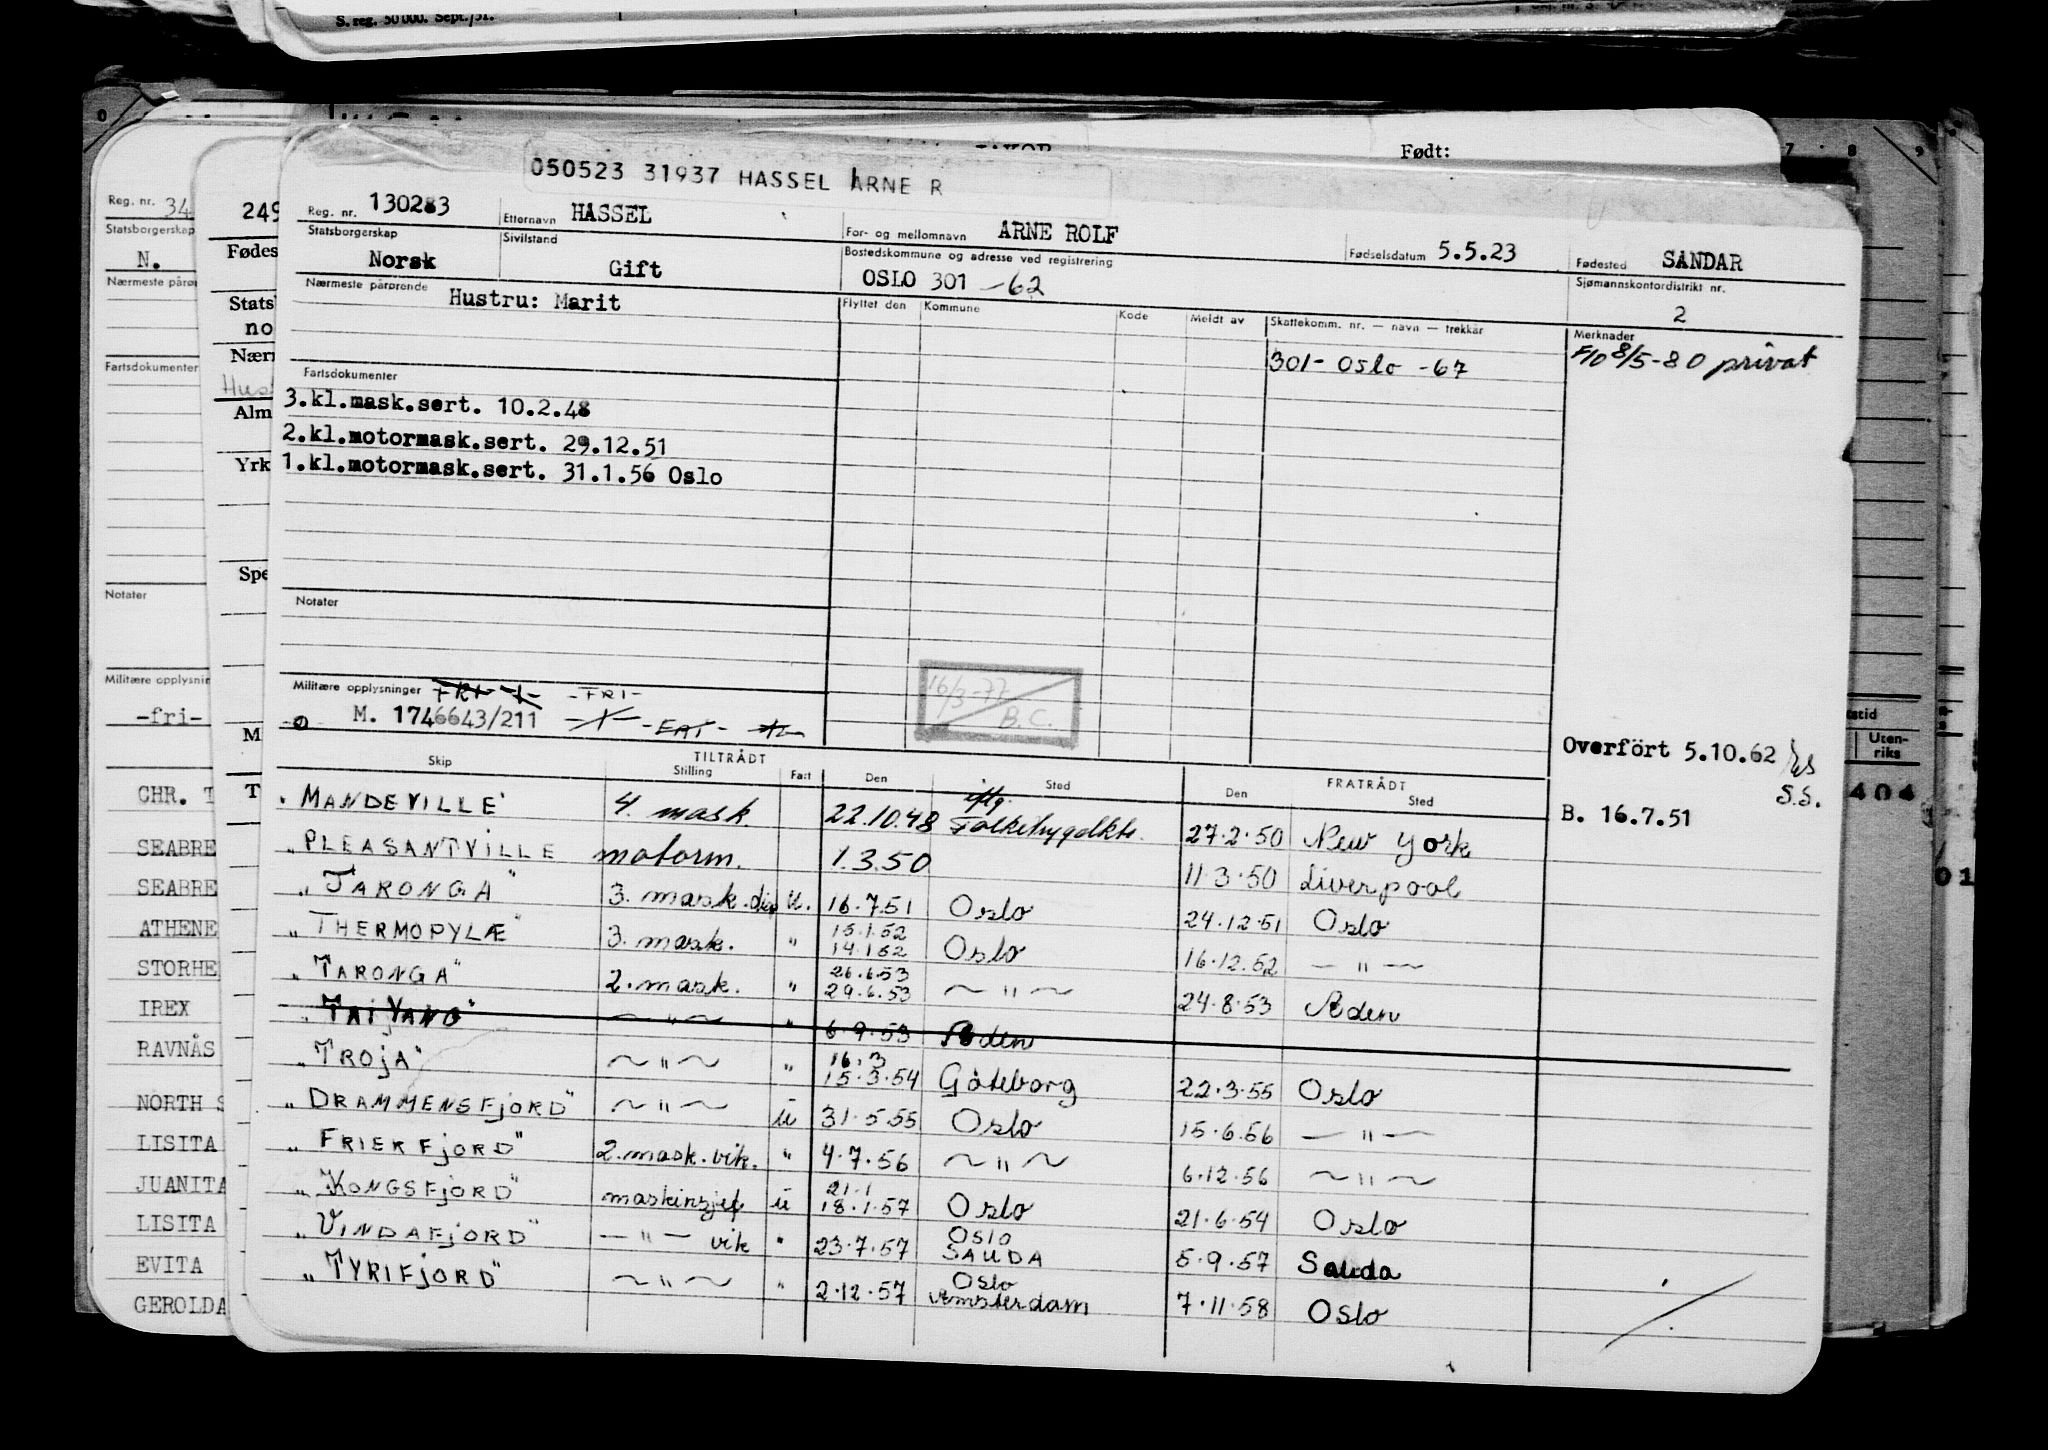 S. reg. 50 000. Sept./51.
Født:
050523 31937 HASSEL ARNE R
Reg. nr. 130283 Etternavn HASSEL For- og mellomnavn ARNE ROLF Fødselsdatum 5.5.23 Fødested SANDAR
Statsborgerskap Norsk Sivilstand Gift Bostedskommune og adresse ved registrering OSLO 301 -62 Sjømannskontordistrikt nr. 2
Nærmeste pårørende Hustru: Marit Flyttet den Kommune Kode Meldt av Skattekomm. nr. — navn — trekkår Merknader
301- Oslo -67 F/O 8/5-80 privat
Fartsdokumenter
3.kl.mask.sert. 10.2.48
2.kl.motormask.sert. 29.12.51
1.kl.motormask.sert. 31.1.56 Oslo
Notater
Militære opplysninger -FRI-
M. 1746643/211
16/3-77 B.C.
Overført 5.10.62
S.S.
B. 16.7.51
TILTRÅDT FRATRÅDT
Skip Stilling Fart Den Sted Den Sted
"MANDEVILLE" 4. mask. 22.10.48 27.2.50 New York
"PLEASANTVILLE motorm. 1.3.50 11.3.50 Liverpool
"TARONGA" 3. mask. U. 16.7.51 Oslo 24.12.51 Oslo
"THERMOPYLÆ" 3. mask. " 15.1.52 14.1.52 Oslo 16.12.52 — " —
"TARONGA" 2. mask. " 26.6.53 29.6.53 ~ " ~ 24.8.53 Aden
"TAI YANG" ~ " ~ " 6.9.53 Aden
"TROJA" ~ " ~ " 16.3 15.3.54 Göteborg 22.3.55 Oslo
"DRAMMENSFJORD" ~ " ~ U 31.5.55 Oslo 15.6.56 — " —
"FRIERFJORD" 2. mask. vik. " 4.7.56 ~ " ~ 6.12.56 ~ " ~
"KONGSFJORD" maskinsjef U 21.1 18.1.57 Oslo 21.6.54 Oslo
"VINDAFJORD" — " — vik " 23.7.57 OSLO SAUDA 5.9.57 Sauda
"TYRIFJORD" ~ " ~ " 2.12.57 Oslo Amsterdam 7.11.58 Oslo
Reg. nr. 34
Statsborgerskap
N.
Fartsdokumenter
Notater
Militære
-fri-
CHR.
SEABRE
SEABRE
ATHENE
STORHE
IREX
RAVNÅS
NORTH S
LISITA
JUANITA
LISITA
EVITA
GEROLDA
249
Føde
Stats
no
Nær
Alm
Yrk
Spe
M
T
Uten-
riks
404
01